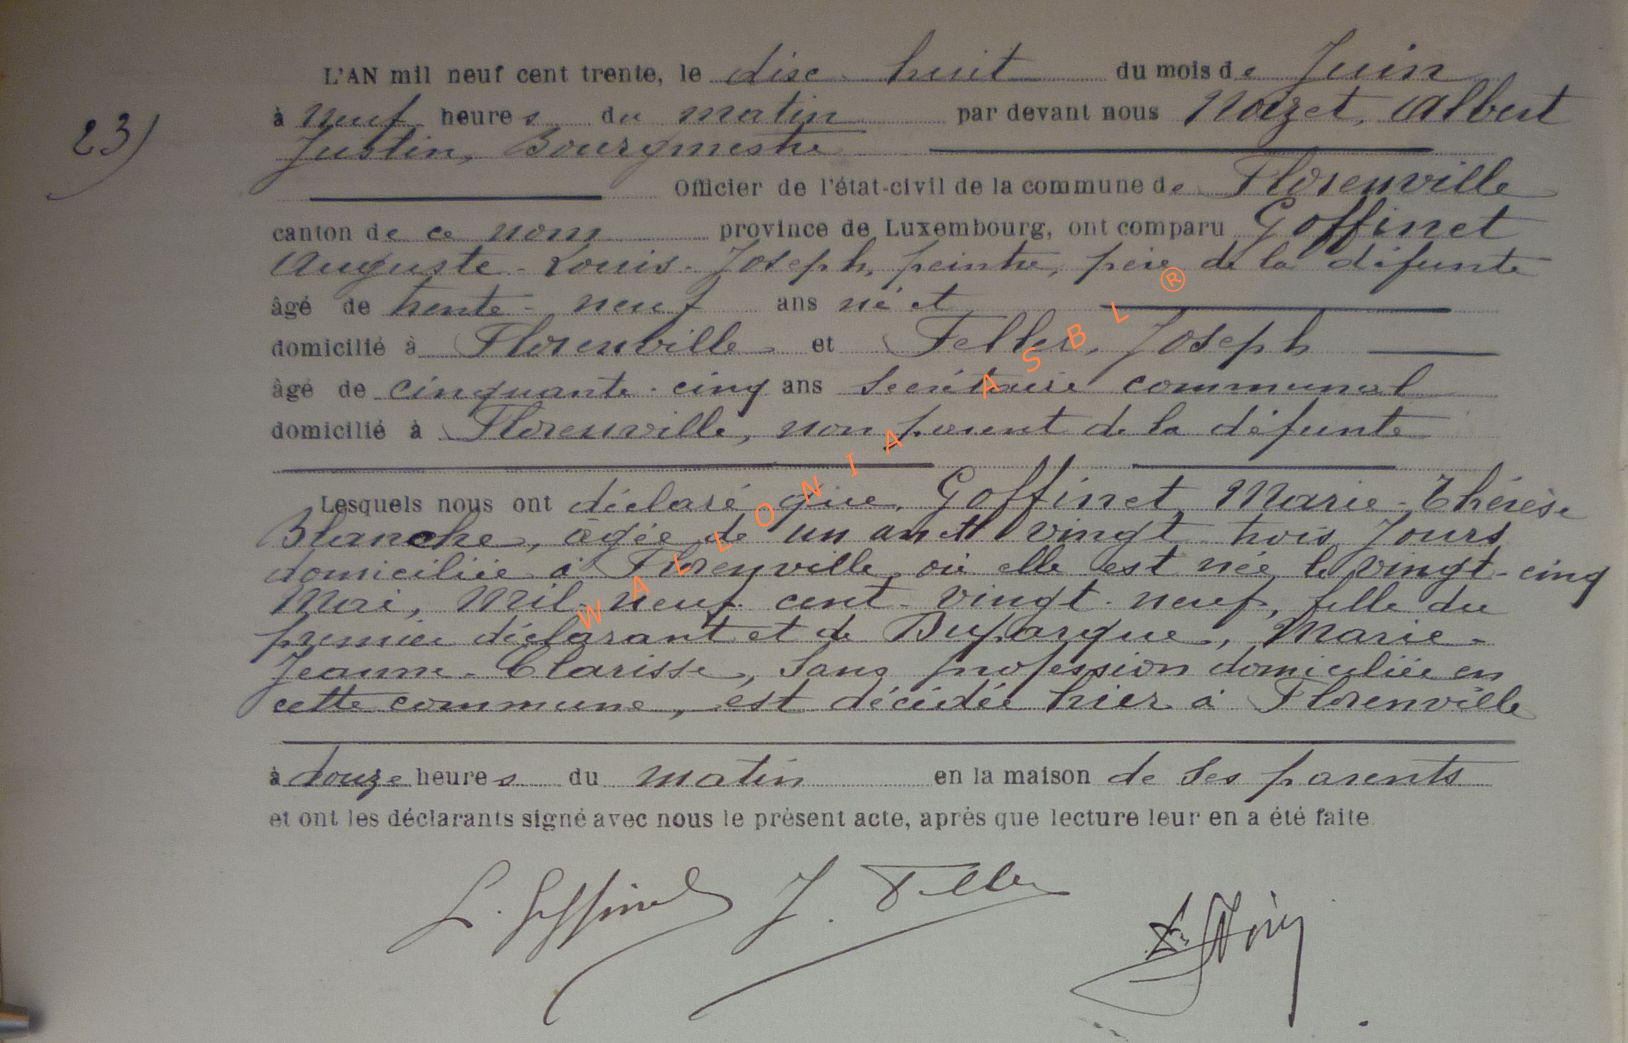 L'AN mil neuf cent trente, le dix huit du mois de Juin
23) à neuf heures du matin par devant nous Nozet, Albert
Justin, Bourgmestre
Officier de l'état-civil de la commune de Florenville
canton de ce nom province de Luxembourg, ont comparu Goffinet
Auguste-Louis-Joseph, peintre, père de la défunte
âgé de trente-neuf ans né et
domicilié à Florenville et Feller, Joseph
âgé de cinquante-cinq ans secrétaire communal
domicilié à Florenville, non parent de la défunte
Lesquels nous ont déclaré que, Goffinet, Marie-Thérèse
Blanche, âgée de un an et vingt trois jours
domiciliée à Florenville, où elle est née le vingt-cinq
Mai, Mil-neuf cent-vingt-neuf, fille du
premier déclarant et de Marie-
Jeanne-Clarisse, sans profession domiciliée en
cette commune, est décédée hier à Florenville
à douze heures du matin en la maison de ses parents
et ont les déclarants signé avec nous le présent acte, après que lecture leur en a été faite
L. Goffinet J. Feller
WALLONIA ASBL ®